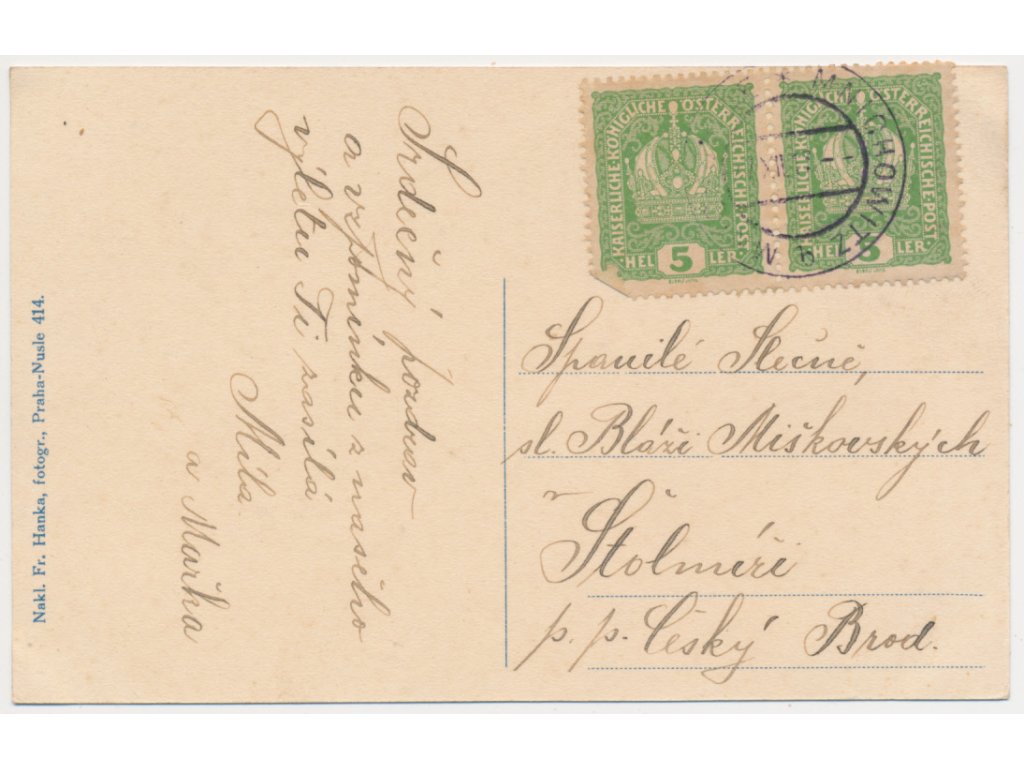 Nakl. Fr. Hanka, fotogr., Praha-Nusle 414.
Srdečný pozdrav
a vzpomínku z našeho
výletu Ti zasílá
Míla
a Mařka
KAISERLICHE KÖNIGLICHE ÖSTERREICHISCHE POST
5
HEL LER
KAISERLICHE KÖNIGLICHE ÖSTERREICHISCHE POST
5
HEL LER
MNICHOWITZ
Spanilé Slečně,
sl. Bláži Miškovských
v
Štolmíři
p. p. Český Brod.